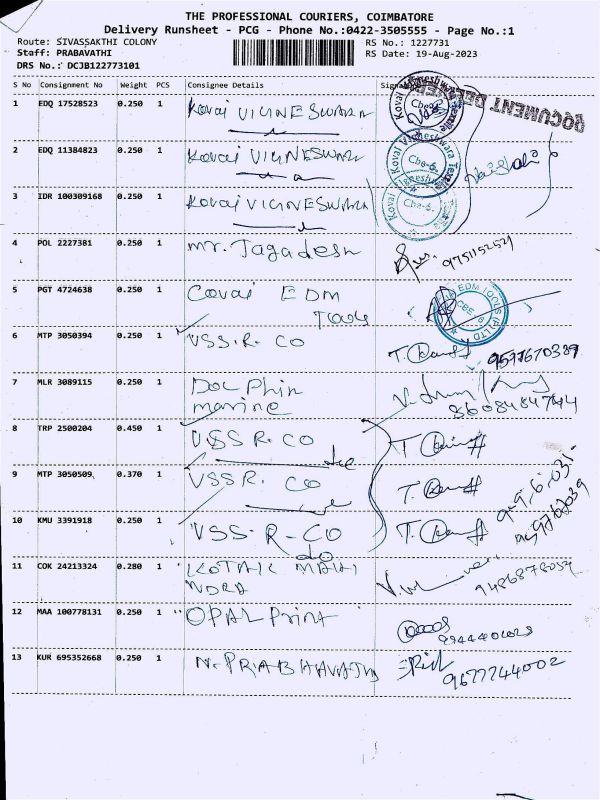 THE PROFESSIONAL COURIERS, COIMBATORE
Delivery Runsheet - PCG - Phone No.:0422-3505555 - Page No.:1
Route: SIVASSAKTHI COLONY RS No.: 1227731
Staff: PRABAVATHI RS Date: 19-Aug-2023
DRS No.: DCJB122773101
S No Consignment No Weight PCS Consignee Details
DOCUMENT
1 EDQ 17528523 0.250 1 Kovai VIGNESWARA
2 EDQ 11384823 0.250 1 Kovai VIGNESWARA
3 IDR 100309168 0.250 1 Kovai VIGNESWARA
Kovai Vigneshwara
Cbe-6.
4 POL 2227381 0.250 1 Mr. Jagadesh
5 PGT 4724638 0.250 1 Covai EDM
Tools
6 MTP 3050394 0.250 1 VSS.R. CO
7 MLR 3089115 0.250 1 Dolphin
marine 8608484744
8 TRP 2500204 0.450 1 VSS R. CO
9 MTP 3050509 0.370 1 VSSR. CO
10 KMU 3391918 0.250 1 VSS-R-CO
do
11 COK 24213324 0.280 1 KOTAK MAHI
NDRA
12 MAA 100778131 0.250 1 "OPAL Print"
13 KUR 695352668 0.250 1 N. PRABHAVATHI 9677744002